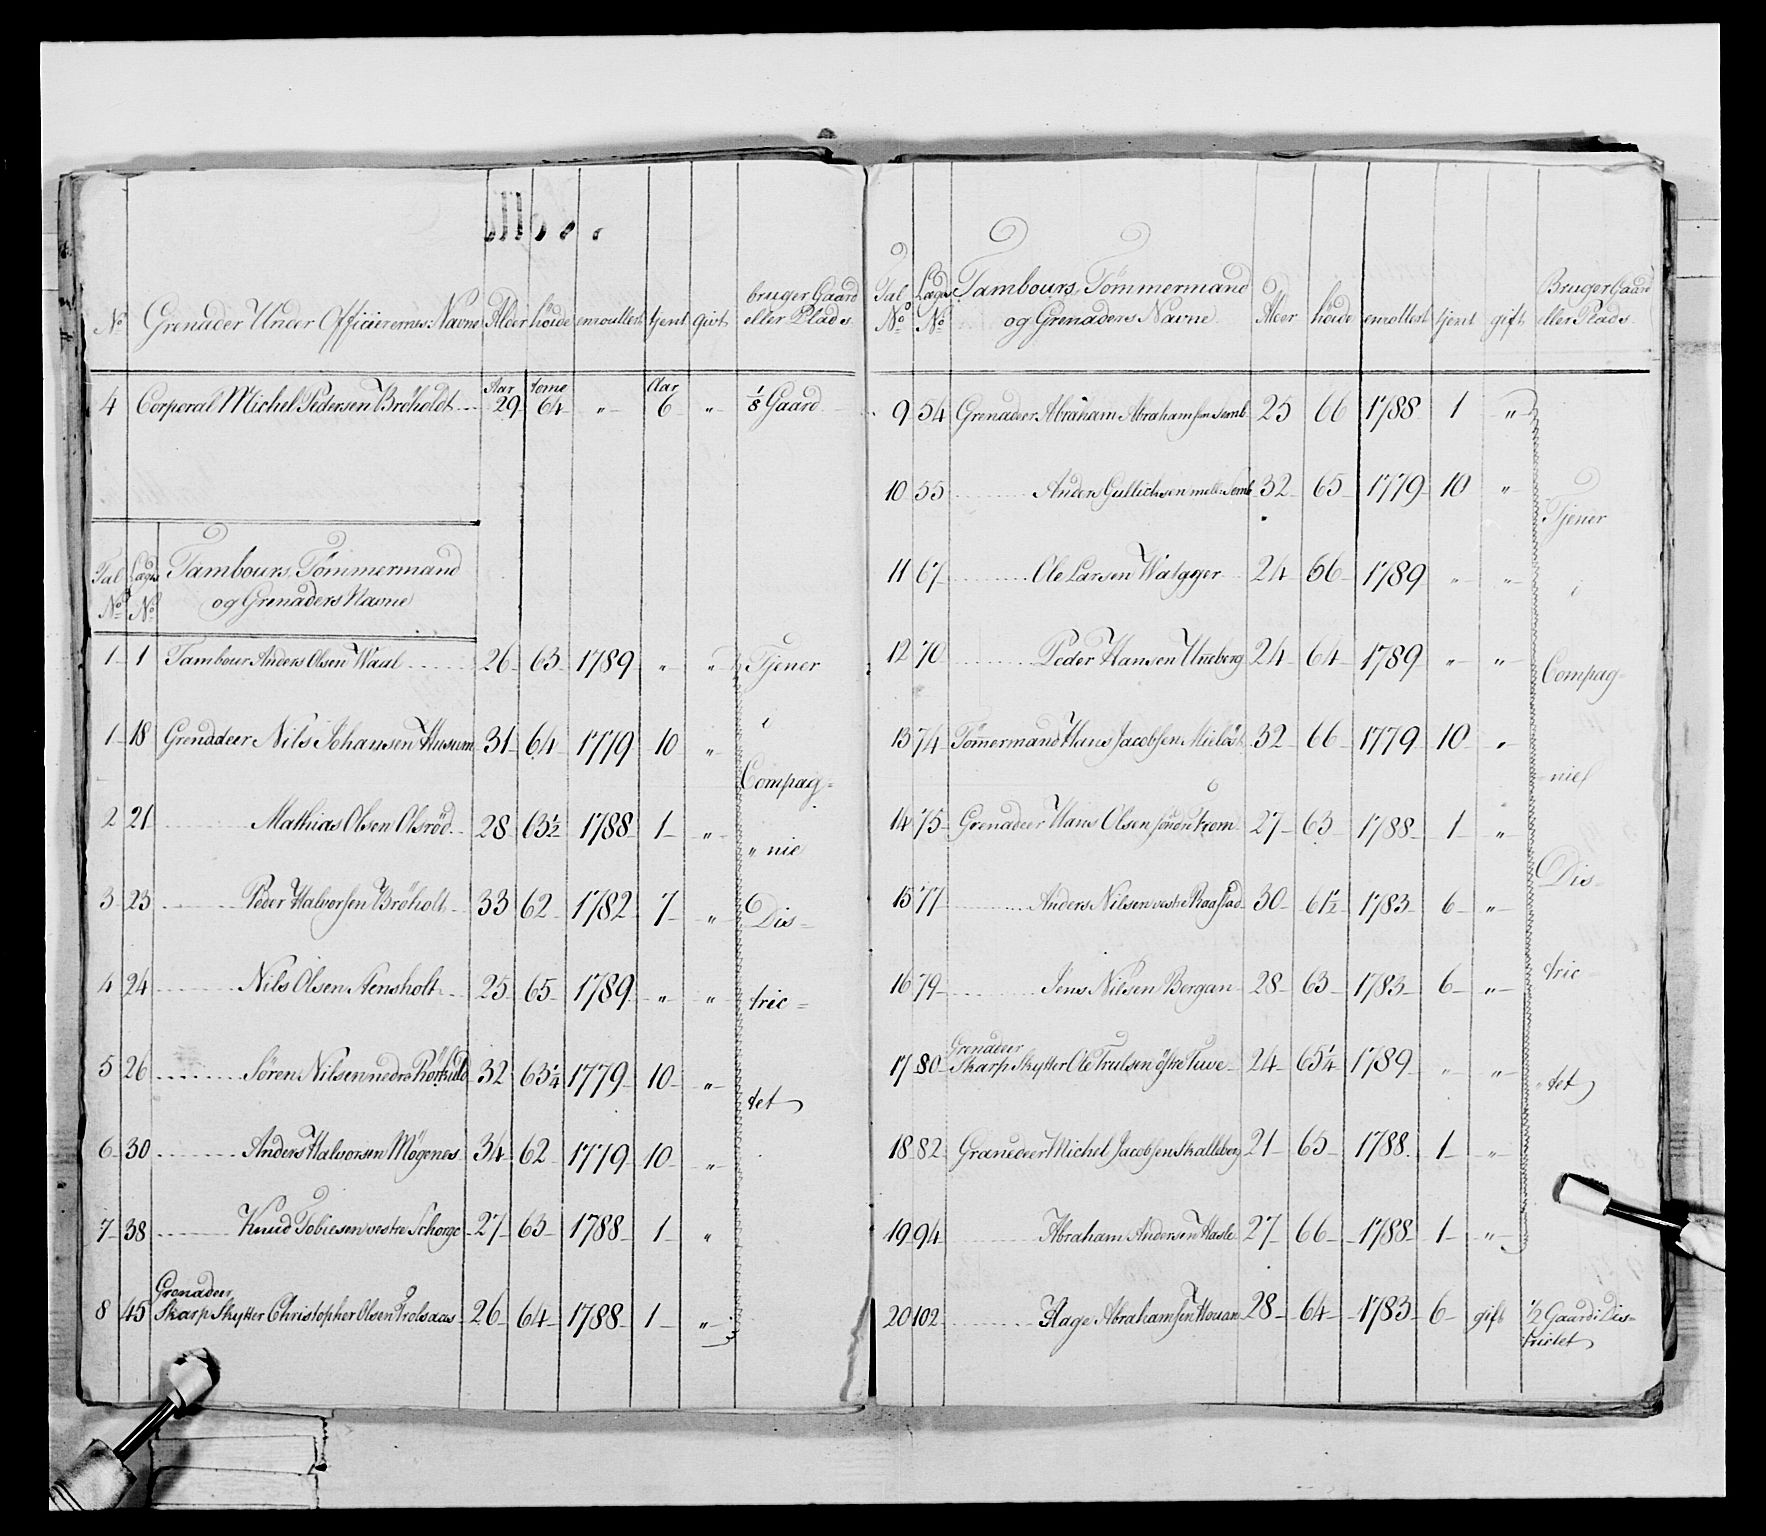 No Grenader Under Officierernes Navne Alder höide enroullert tjent givt bruger Gaard eller Plads
Aar tome Aar
4 Corporal Michel Pedersen Bröholdt 29 64 " 6 " 1/8 Gaard
Tal No Lægs No Tambours, Tømmermænd
og Grenaders Navne
1 1 Tambour Anders Olsen Waal 26 63 1789 " " Tjener
1 18 Grenadeer Nils Johansen Husum 31 64 1779 10 " i
Compag=
2 21 Mathias Olsen Olsröd 28 63 1/2 1788 1 " " nie
3 23 Peder Halvorsen Bröholt 33 62 1782 7 " Dis=
4 24 Nils Olsen Aensholt 25 65 1789 " " tric=
5 26 Søren Nilsen nedre Rörkuld 32 63 1/4 1779 10 "
tet
6 30 Anders Halvorsen Mögenes 34 62 1779 10 "
7 38 Knud Tobiesen vestre Schorge 27 63 1788 1 "
Grenadeer
8 45 Skarp Skytter Christopher Olsen Trolsaas 26 64 1788 1 "
Tal No Lægs No Tambours, Tömmermænd
og Grenaders Navne Alder höide enrollert tjent gift Bruger Gaard eller Plads
9 54 Grenadeer Abraham Abrahamsen Semb 25 66 1788 1 "
10 55 Anders Gullichsen melle Semb 32 65 1779 10 "
Tjener
11 67 Ole Larsen Walgger 24 66 1789 " "
i
12 70 Peder Hansen Unneberg 24 64 1789 " "
Compag=
13 74 Tömmermand Hans Jacobsen Mielöst 32 66 1779 10 "
nies
14 75 Grenadeer Hans Olsen søndre From 27 63 1788 1 "
Dis=
15 77 Anders Nilsen vestre Raastad 30 61 1/2 1783 6 "
16 79 Jens Nilsen Bergan 28 63 1783 6 " tric
Grenadeer
17 80 Skarp Skytter Ole Trulsen östre Tuve 24 65 1/4 1789 " "
tet
18 82 Granedeer Michel Jacobsen Skallberg 21 65 1788 1 "
19 94 Abraham Andersen Hasle 27 66 1788 1 "
20 102 Hage Abrahamsen Houan 28 64 1783 6 gift 1/2 Gaard i Dis=
trictet